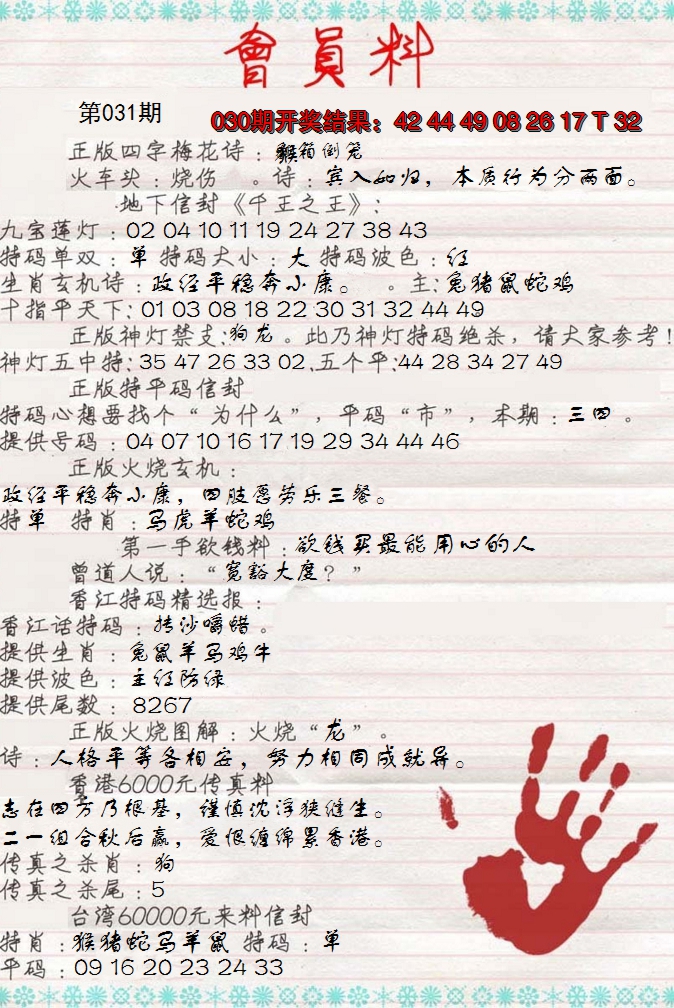 會員料
第031期
030期开奖结果：42 44 49 08 26 17 T 32
正版四字梅花诗：翻箱倒笼
火车头：烧伤 。诗：宾入如归，本质行为分两面。
地下信封《千王之王》：
九宝莲灯：02 04 10 11 19 24 27 38 43
特码单双：单 特码大小：大 特码波色：红
生肖玄机诗：政经平稳奔小康。 。主：兔猪鼠蛇鸡
十指平天下：01 03 08 18 22 30 31 32 44 49
正版神灯禁支：狗龙。此乃神灯特码绝杀，请大家参考！
神灯五中特：35 47 26 33 02.五个平：44 28 34 27 49
正版特平码信封
特码心想要找个“为什么”，平码“市”，本期：三四。
提供号码：04 07 10 16 17 19 29 34 44 46
正版火烧玄机：
政经平稳奔小康，四肢愿劳乐三餐。
特单 特肖：马虎羊蛇鸡
第一手欲钱料：欲钱买最能用心的人
曾道人说：“宽豁大度？”
香江特码精选报：
香江话特码：抟沙嚼蜡。
提供生肖：兔鼠羊马鸡牛
提供波色：主红防绿
提供尾数：8267
正版火烧图解：火烧“龙”。
诗：人格平等各相安，努力相同成就异。
香港6000元传真料
志在四方乃根基，谨慎沈浮狭缝生。
二一组合秋后赢，爱恨缠绵累香港。
传真之杀肖：狗
传真之杀尾：5
台湾60000元来料信封
特肖：猴猪蛇马羊鼠 特码：单
平码：09 16 20 23 24 33